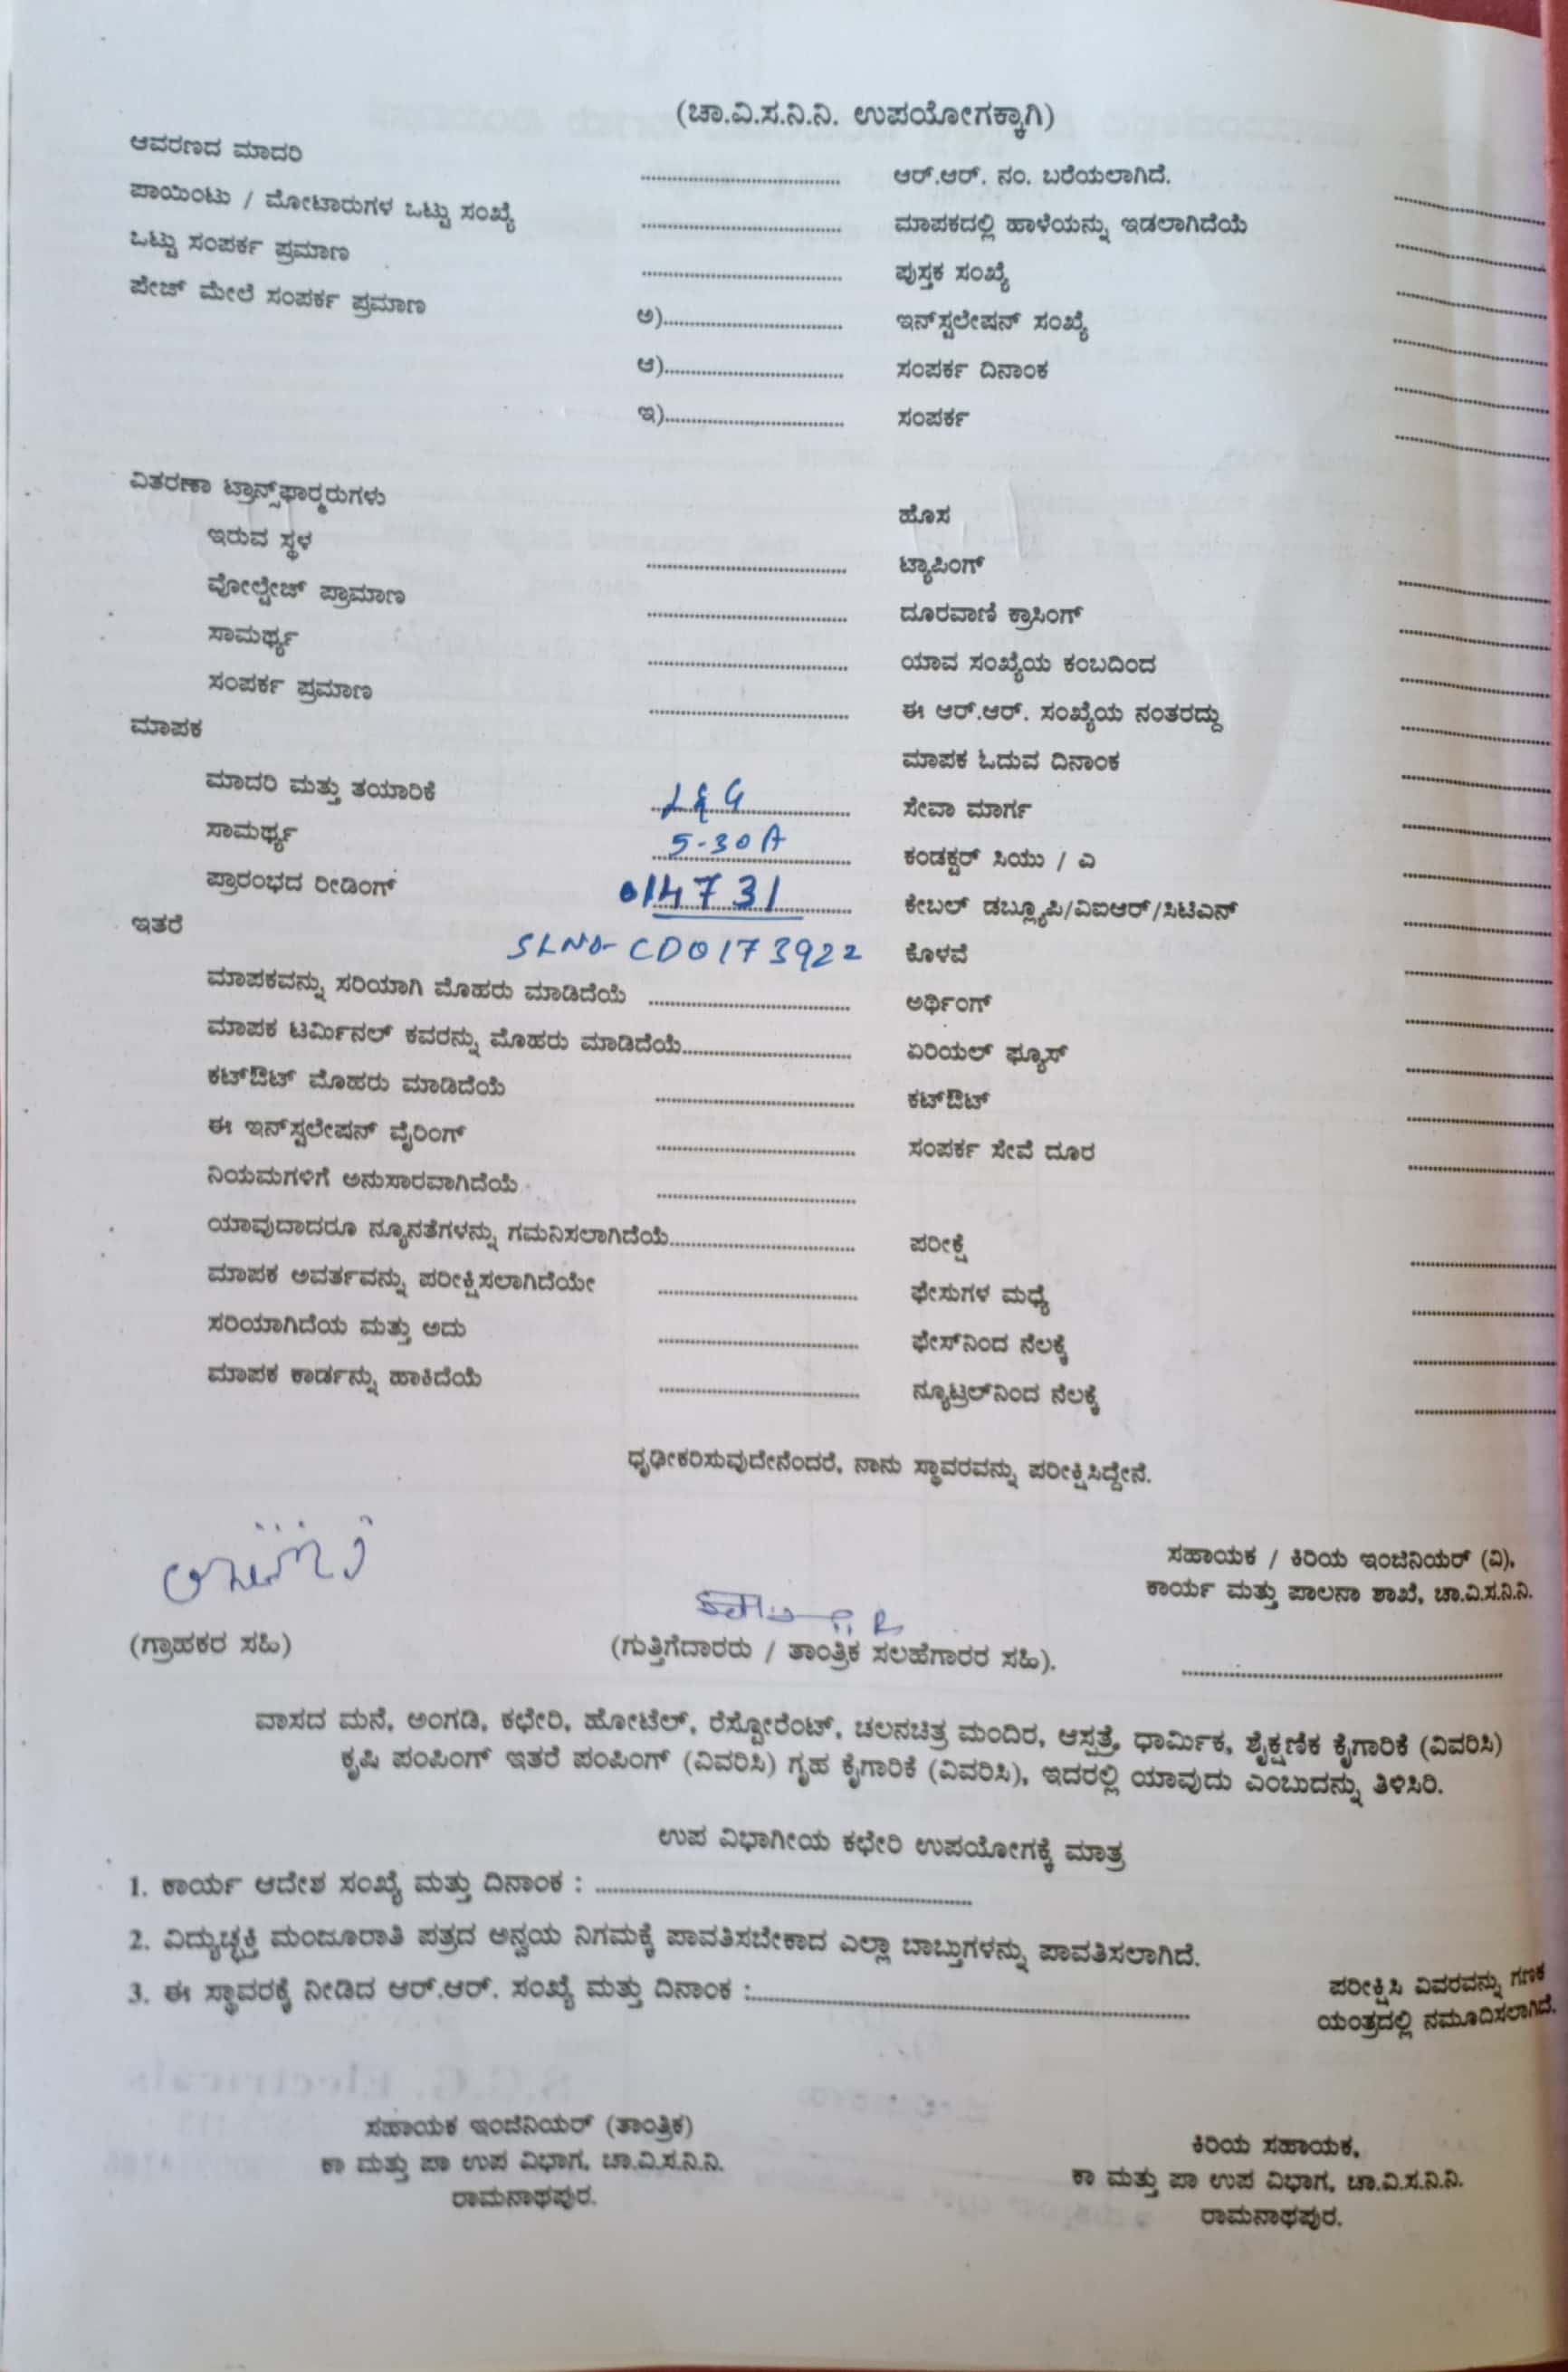 (ಚಾ.ವಿ.ಸ.ನಿ.ನಿ. ಉಪಯೋಗಕ್ಕಾಗಿ)
ಆವರಣದ ಮಾದರಿ ........................ ಆರ್.ಆರ್. ನಂ. ಬರೆಯಲಾಗಿದೆ. ........................
ಪಾಯಿಂಟು / ಮೋಟಾರುಗಳ ಒಟ್ಟು ಸಂಖ್ಯೆ ........................ ಮಾಪಕದಲ್ಲಿ ಹಾಳೆಯನ್ನು ಇಡಲಾಗಿದೆಯೆ ........................
ಒಟ್ಟು ಸಂಪರ್ಕ ಪ್ರಮಾಣ ........................ ಪುಸ್ತಕ ಸಂಖ್ಯೆ ........................
ಪೇಜ್ ಮೇಲೆ ಸಂಪರ್ಕ ಪ್ರಮಾಣ ಅ)........................ ಇನ್‌ಸ್ಟಲೇಷನ್ ಸಂಖ್ಯೆ ........................
ಆ)........................ ಸಂಪರ್ಕ ದಿನಾಂಕ ........................
ಇ)........................ ಸಂಪರ್ಕ ........................
ವಿತರಣಾ ಟ್ರಾನ್ಸ್‌ಫಾರ್‍ಮರುಗಳು ಹೊಸ
ಇರುವ ಸ್ಥಳ ........................ ಟ್ಯಾಪಿಂಗ್ ........................
ವೋಲ್ಟೇಜ್ ಪ್ರಾಮಾಣ ........................ ದೂರವಾಣಿ ಕ್ರಾಸಿಂಗ್ ........................
ಸಾಮರ್ಥ್ಯ ........................ ಯಾವ ಸಂಖ್ಯೆಯ ಕಂಬದಿಂದ ........................
ಸಂಪರ್ಕ ಪ್ರಮಾಣ ........................ ಈ ಆರ್.ಆರ್. ಸಂಖ್ಯೆಯ ನಂತರದ್ದು ........................
ಮಾಪಕ ಮಾಪಕ ಓದುವ ದಿನಾಂಕ ........................
ಮಾದರಿ ಮತ್ತು ತಯಾರಿಕೆ L&G ಸೇವಾ ಮಾರ್ಗ ........................
ಸಾಮರ್ಥ್ಯ 5-30A ಕಂಡಕ್ಟರ್ ಸಿಯು / ಎ ........................
ಪ್ರಾರಂಭದ ರೀಡಿಂಗ್ 014731 ಕೇಬಲ್ ಡಬ್ಲ್ಯೂಪಿ/ವಿಐಆರ್/ಸಿಟಿಎನ್ ........................
ಇತರೆ SLNo- CD0173922 ಕೊಳವೆ ........................
ಮಾಪಕವನ್ನು ಸರಿಯಾಗಿ ಮೊಹರು ಮಾಡಿದೆಯೆ ........................ ಅರ್ಥಿಂಗ್ ........................
ಮಾಪಕ ಟರ್ಮಿನಲ್ ಕವರನ್ನು ಮೊಹರು ಮಾಡಿದೆಯೆ........................ ಏರಿಯಲ್ ಫ್ಯೂಸ್ ........................
ಕಟ್‌ಔಟ್ ಮೊಹರು ಮಾಡಿದೆಯೆ ........................ ಕಟ್‌ಔಟ್ ........................
ಈ ಇನ್‌ಸ್ಟಲೇಷನ್ ವೈರಿಂಗ್ ........................ ಸಂಪರ್ಕ ಸೇವೆ ದೂರ ........................
ನಿಯಮಗಳಿಗೆ ಅನುಸಾರವಾಗಿದೆಯೆ ........................
ಯಾವುದಾದರೂ ನ್ಯೂನತೆಗಳನ್ನು ಗಮನಿಸಲಾಗಿದೆಯೆ........................ ಪರೀಕ್ಷೆ ........................
ಮಾಪಕ ಅವರ್ತವನ್ನು ಪರೀಕ್ಷಿಸಲಾಗಿದೆಯೇ ........................ ಫೇಸುಗಳ ಮಧ್ಯೆ ........................
ಸರಿಯಾಗಿದೆಯ ಮತ್ತು ಅದು ........................ ಫೇಸ್‌ನಿಂದ ನೆಲಕ್ಕೆ ........................
ಮಾಪಕ ಕಾರ್ಡನ್ನು ಹಾಕಿದೆಯೆ ........................ ನ್ಯೂಟ್ರಲ್‌ನಿಂದ ನೆಲಕ್ಕೆ ........................
ಧೃಢೀಕರಿಸುವುದೇನೆಂದರೆ, ನಾನು ಸ್ಥಾವರವನ್ನು ಪರೀಕ್ಷಿಸಿದ್ದೇನೆ.
ಸಹಾಯಕ / ಕಿರಿಯ ಇಂಜಿನಿಯರ್ (ವಿ),
ಕಾರ್ಯ ಮತ್ತು ಪಾಲನಾ ಶಾಖೆ, ಚಾ.ವಿ.ಸ.ನಿ.ನಿ.
(ಗ್ರಾಹಕರ ಸಹಿ) (ಗುತ್ತಿಗೆದಾರರು / ತಾಂತ್ರಿಕ ಸಲಹೆಗಾರರ ಸಹಿ). ........................
ವಾಸದ ಮನೆ, ಅಂಗಡಿ, ಕಛೇರಿ, ಹೋಟೆಲ್, ರೆಸ್ಟೋರೆಂಟ್, ಚಲನಚಿತ್ರ ಮಂದಿರ, ಆಸ್ಪತ್ರೆ, ಧಾರ್ಮಿಕ, ಶೈಕ್ಷಣಿಕ ಕೈಗಾರಿಕೆ (ವಿವರಿಸಿ)
ಕೃಷಿ ಪಂಪಿಂಗ್ ಇತರೆ ಪಂಪಿಂಗ್ (ವಿವರಿಸಿ) ಗೃಹ ಕೈಗಾರಿಕೆ (ವಿವರಿಸಿ), ಇದರಲ್ಲಿ ಯಾವುದು ಎಂಬುದನ್ನು ತಿಳಿಸಿರಿ.
ಉಪ ವಿಭಾಗೀಯ ಕಛೇರಿ ಉಪಯೋಗಕ್ಕೆ ಮಾತ್ರ
1. ಕಾರ್ಯ ಆದೇಶ ಸಂಖ್ಯೆ ಮತ್ತು ದಿನಾಂಕ : ........................
2. ವಿದ್ಯುಚ್ಛಕ್ತಿ ಮಂಜೂರಾತಿ ಪತ್ರದ ಅನ್ವಯ ನಿಗಮಕ್ಕೆ ಪಾವತಿಸಬೇಕಾದ ಎಲ್ಲಾ ಬಾಬ್ತುಗಳನ್ನು ಪಾವತಿಸಲಾಗಿದೆ.
3. ಈ ಸ್ಥಾವರಕ್ಕೆ ನೀಡಿದ ಆರ್.ಆರ್. ಸಂಖ್ಯೆ ಮತ್ತು ದಿನಾಂಕ :........................
ಪರೀಕ್ಷಿಸಿ ವಿವರವನ್ನು ಗಣಕ
ಯಂತ್ರದಲ್ಲಿ ನಮೂದಿಸಲಾಗಿದೆ.
ಸಹಾಯಕ ಇಂಜಿನಿಯರ್ (ತಾಂತ್ರಿಕ)
ಕಾ ಮತ್ತು ಪಾ ಉಪ ವಿಭಾಗ, ಚಾ.ವಿ.ಸ.ನಿ.ನಿ.
ರಾಮನಾಥಪುರ.
ಕಿರಿಯ ಸಹಾಯಕ,
ಕಾ ಮತ್ತು ಪಾ ಉಪ ವಿಭಾಗ, ಚಾ.ವಿ.ಸ.ನಿ.ನಿ.
ರಾಮನಾಥಪುರ.